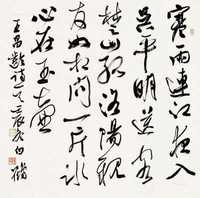 寒雨連江夜入
吳平明送客
楚山孤洛陽親
友如相問一片冰
心在玉壺
王昌齡詩一